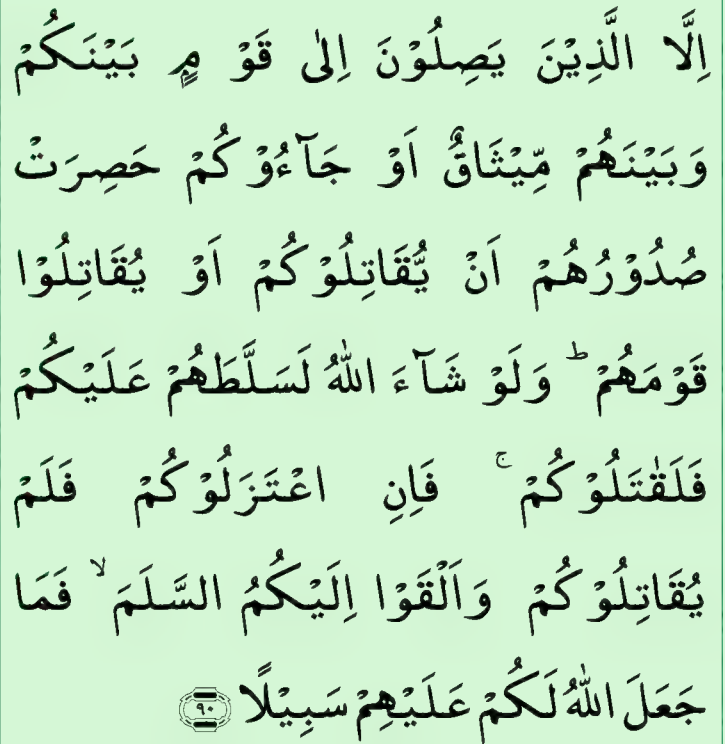 اِلَّا الَّذِيْنَ يَصِلُوْنَ اِلٰى قَوْ مٍۭ بَيْنَكُمْ
وَبَيْنَهُمْ مِّيْثَاقٌ اَوْ جَآءُوْكُمْ حَصِرَتْ
صُدُوْرُهُمْ اَنْ يُّقَاتِلُوْكُمْ اَوْ يُقَاتِلُوْا
قَوْمَهُمْ ؕ وَلَوْ شَآءَ اللّٰهُ لَسَلَّطَهُمْ عَلَيْكُمْ
فَلَقٰتَلُوْكُمْ ۚ فَاِنِ اعْتَزَلُوْكُمْ فَلَمْ
يُقَاتِلُوْكُمْ وَاَلْقَوْا اِلَيْكُمُ السَّلَمَ ۙ فَمَا
جَعَلَ اللّٰهُ لَكُمْ عَلَيْهِمْ سَبِيْلًا ﴿٩٠﴾